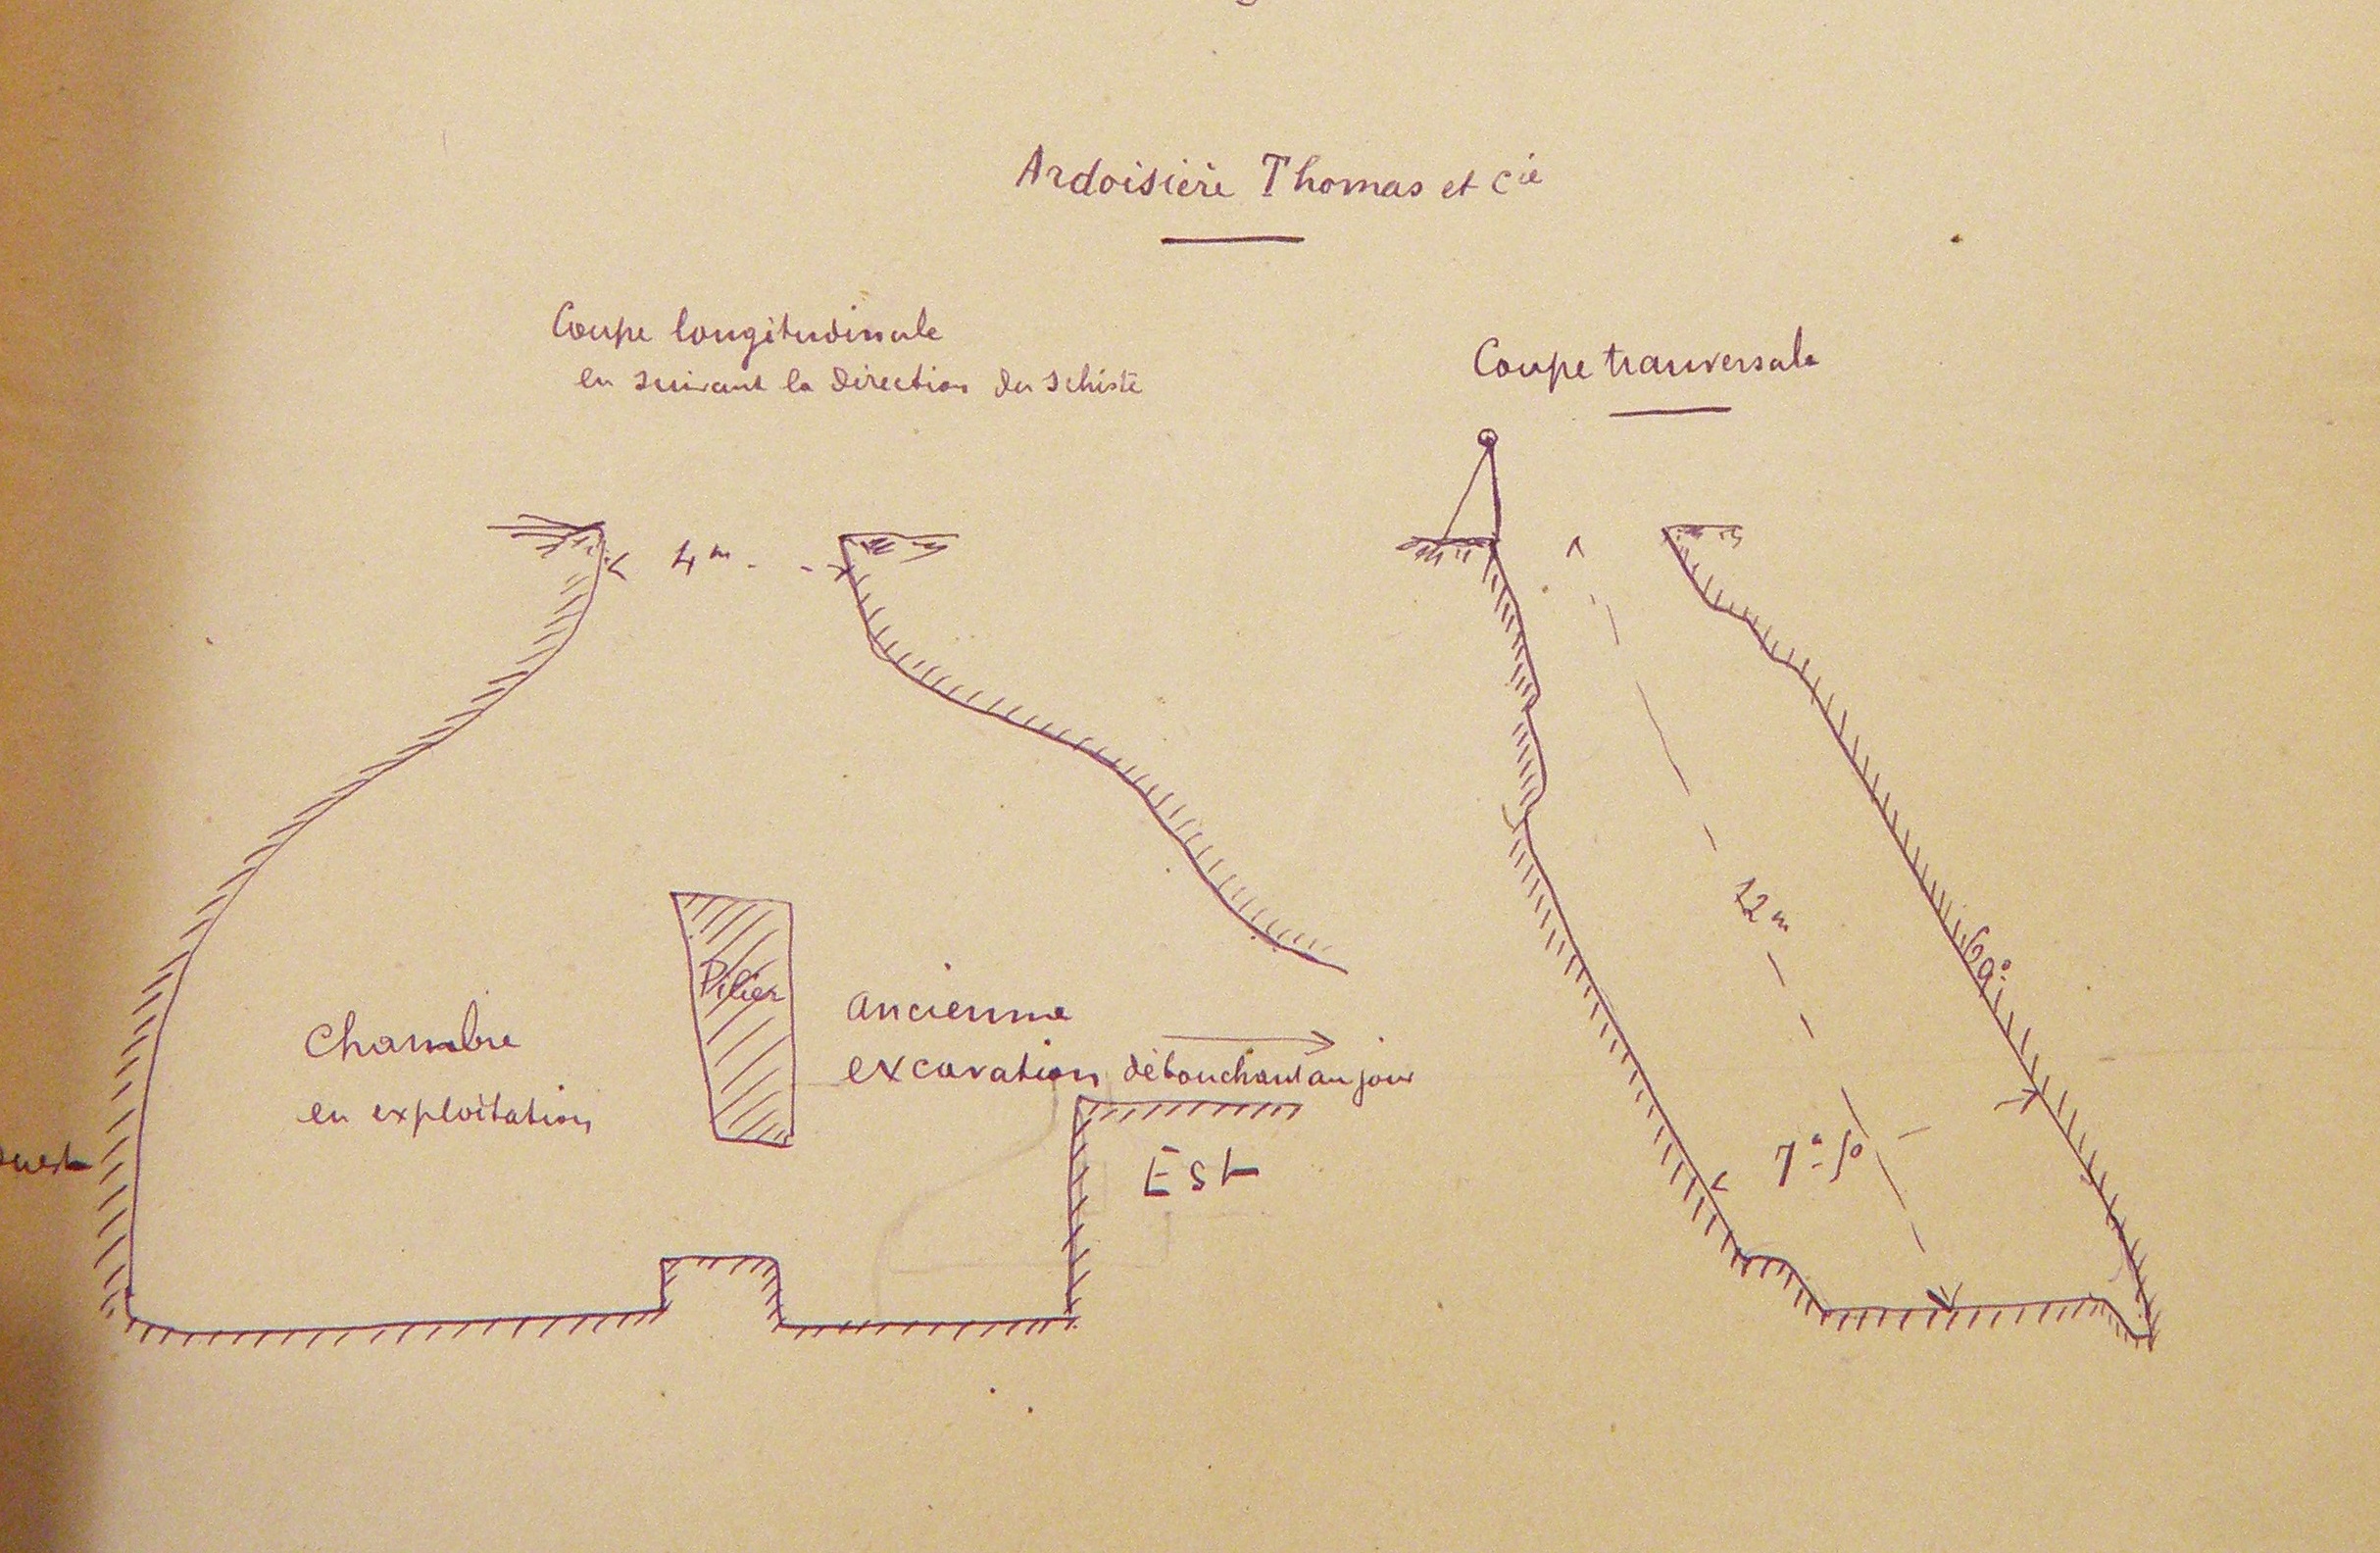 Ardoisière Thomas et Cie
Coupe longitudinale
en suivant la direction du schiste
Coupe transversale
4m
12m
60°
Pilier
Chambre
en exploitation
ancienne
excavation débouchant au jour
7m50
Ouest
Est